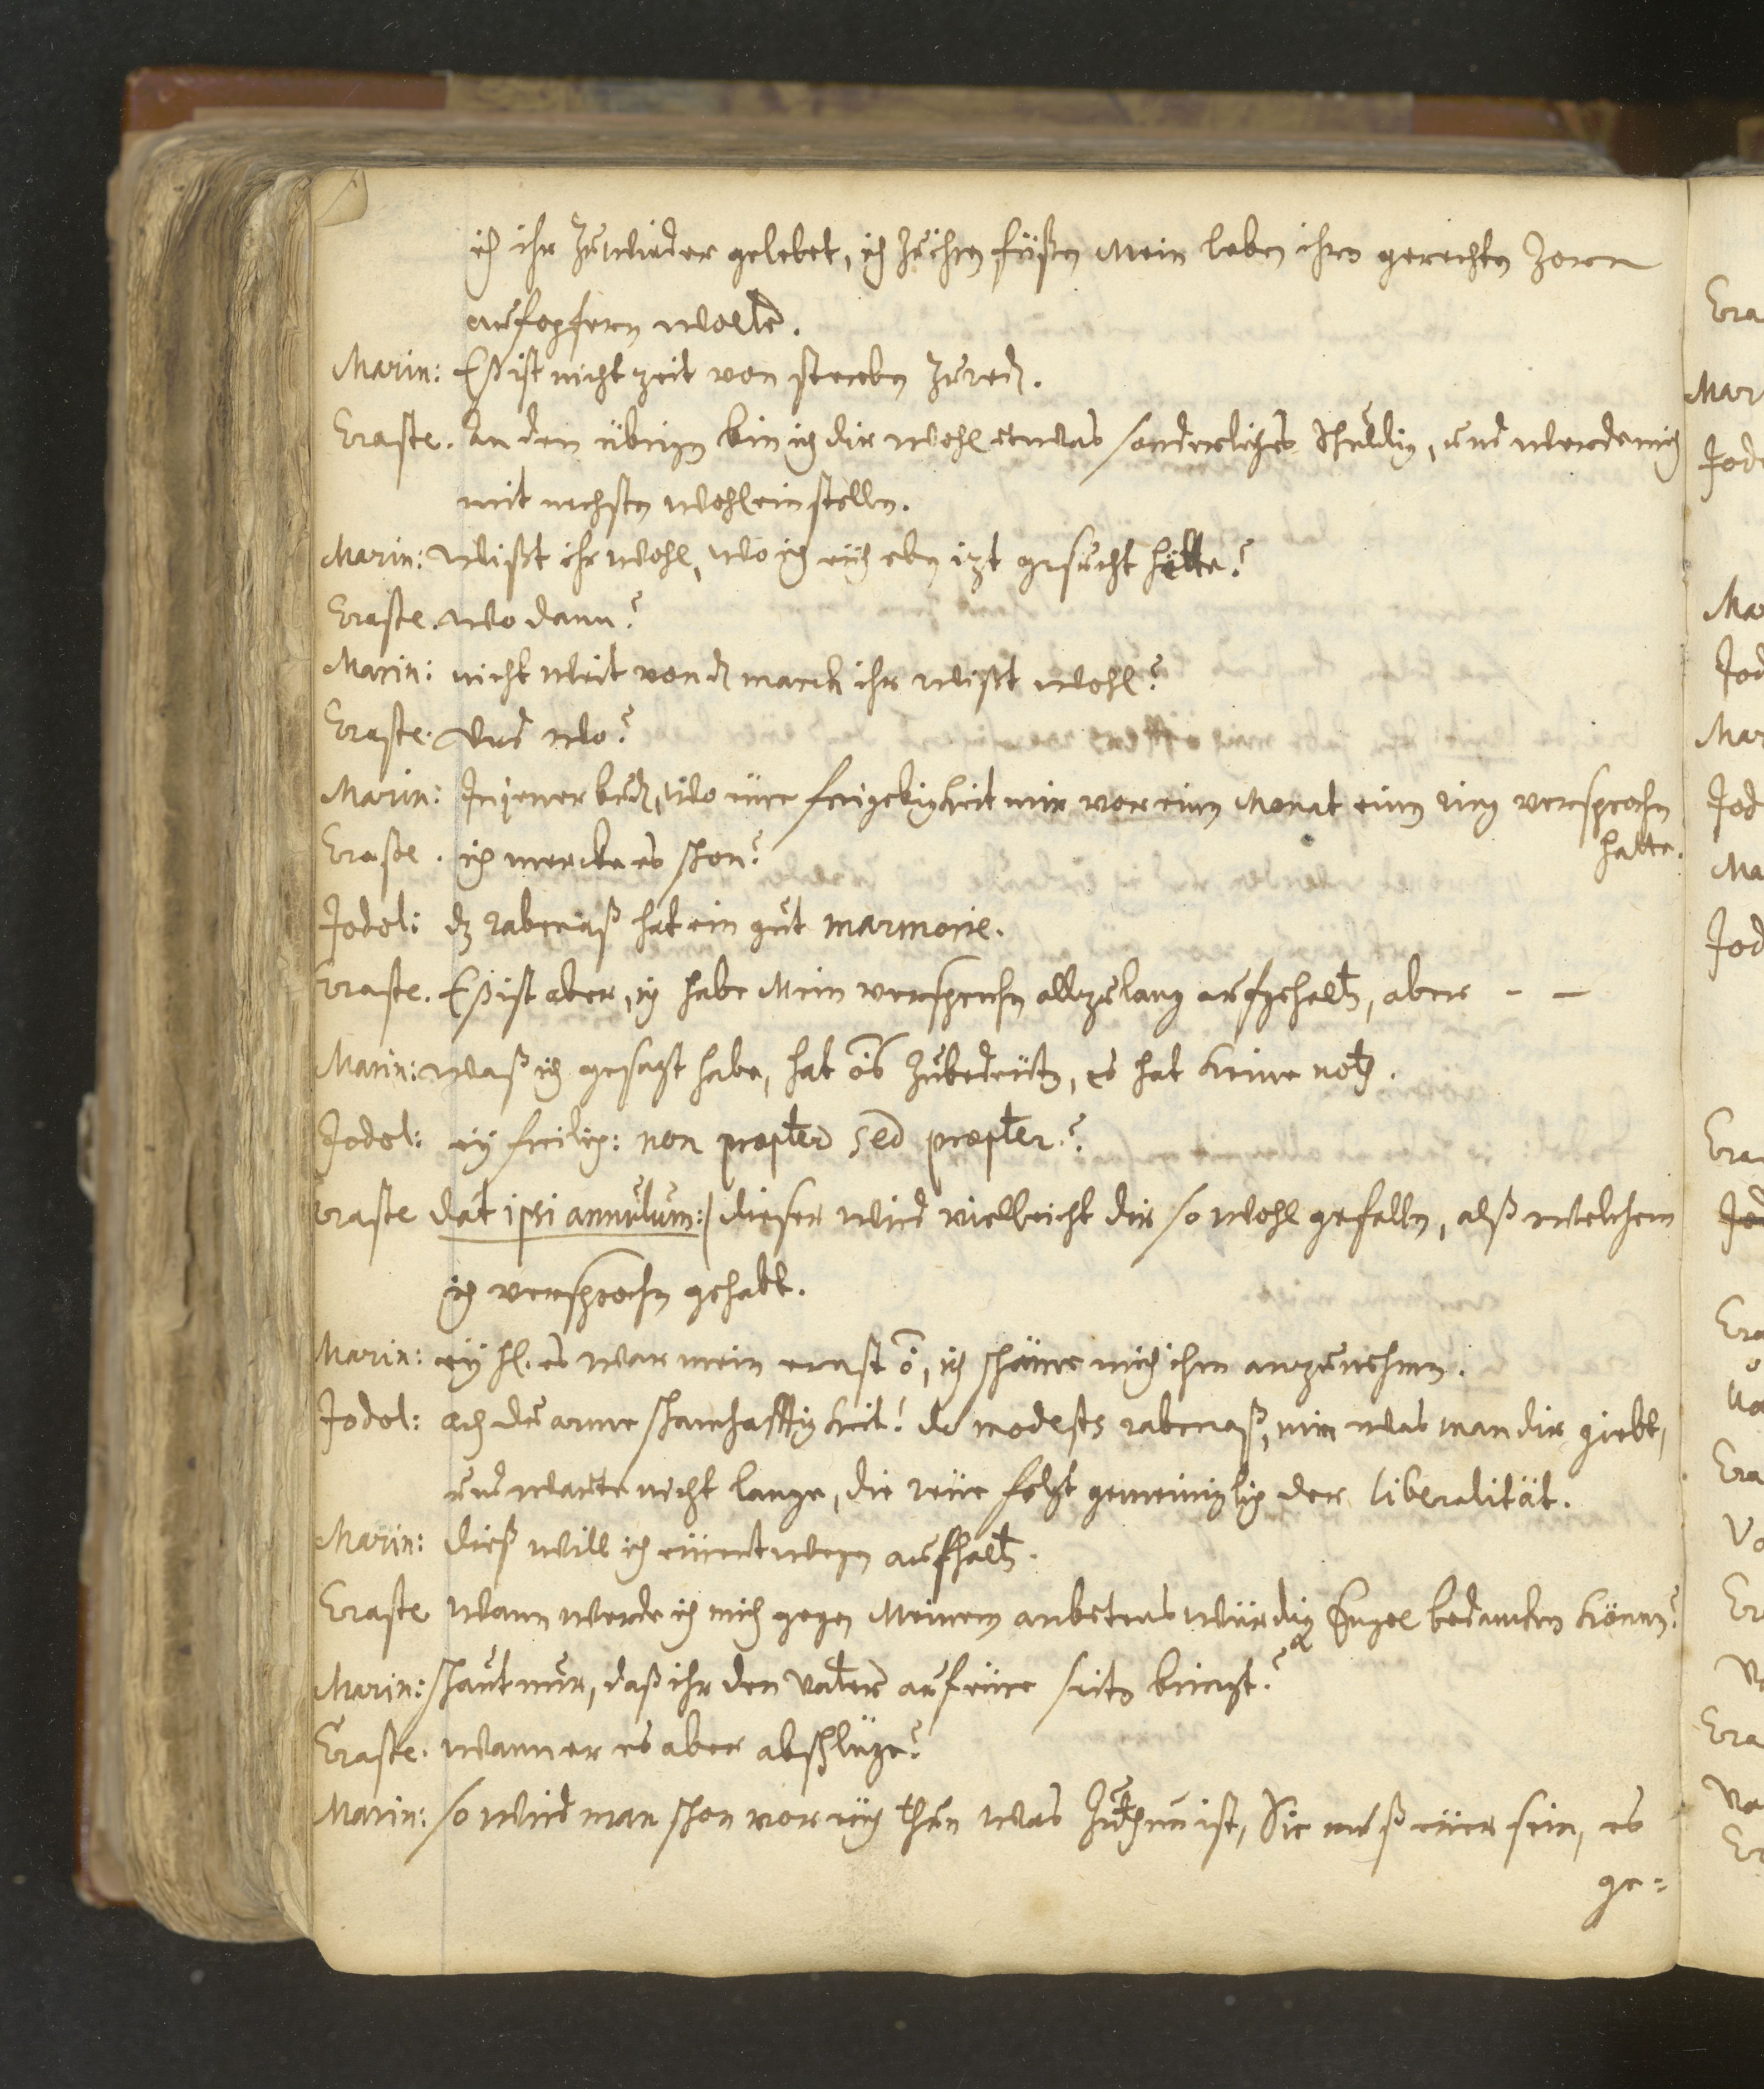 ich ihr zuwieder gelebet, ich zu ihren füßen Mein leben ihres gerechten Zorn
aufopfern wollte.
Marin: Eß ist nicht zeit von sterben zu reden.
Eraste. An den übrigen bin ich dir wohl etwas sonderliches schuldig, und werde mich
mit nechsten wohl einstellen.
Marin: wißt ihr wohl, wo ich euch eben izt gesucht hätte?
Eraste. wo dann?
Marin: nicht weit von den marck ihr wißt wohl?
Eraste. Und wo?
Marin: In jener buden, wo eure freigebigkeit mir vor einen Monat einen ring versprochen
hatte.
Eraste. ich mercke es schon?
Jodol: dz rabenaß hat ein gut marmorie.
Eraste. Eß ist aber, ich habe Mein versprechen allzulang aufgehalten, aber - -
Marin: waß ich gesagt habe, hat õs zubedeuten, es hat keine noth.
Jodol: ey freilich: non propter sed propter?
Eraste dat ipsi annulum:| dieser wird vielleicht dir so wohl gefallen, alß welchem
ich versprochen gehabt.
Marin: ey H. es war mein ernst õ, ich schäme mich ihn anzunehmen.
Jodol: ach du arme schamhafftigkeit! du modestes rabenaß, nim was man dir giebt,
und warte nicht lange, die reüe folgt gemeiniglich der liberalität.
Marin: dieß will ich eürentwegen aufhalten.
Eraste wann werde ich mich gegen Meinem anbetens würdig Engel bedancken können?
Marin: schaut nur, daß ihr den vater auf eüre seite bringt?
Eraste. wann er es aber abschlüge?
Marin: so wird man schon vor euch thun was zuthun ist, Sie muß eüer sein, es
ge=
Era
Mar
Jod
Mar
Jod
Mar
Jod
Ma
Jod
Era
Jod
Era
Era
Va
Er
Va
Era
Va
Er